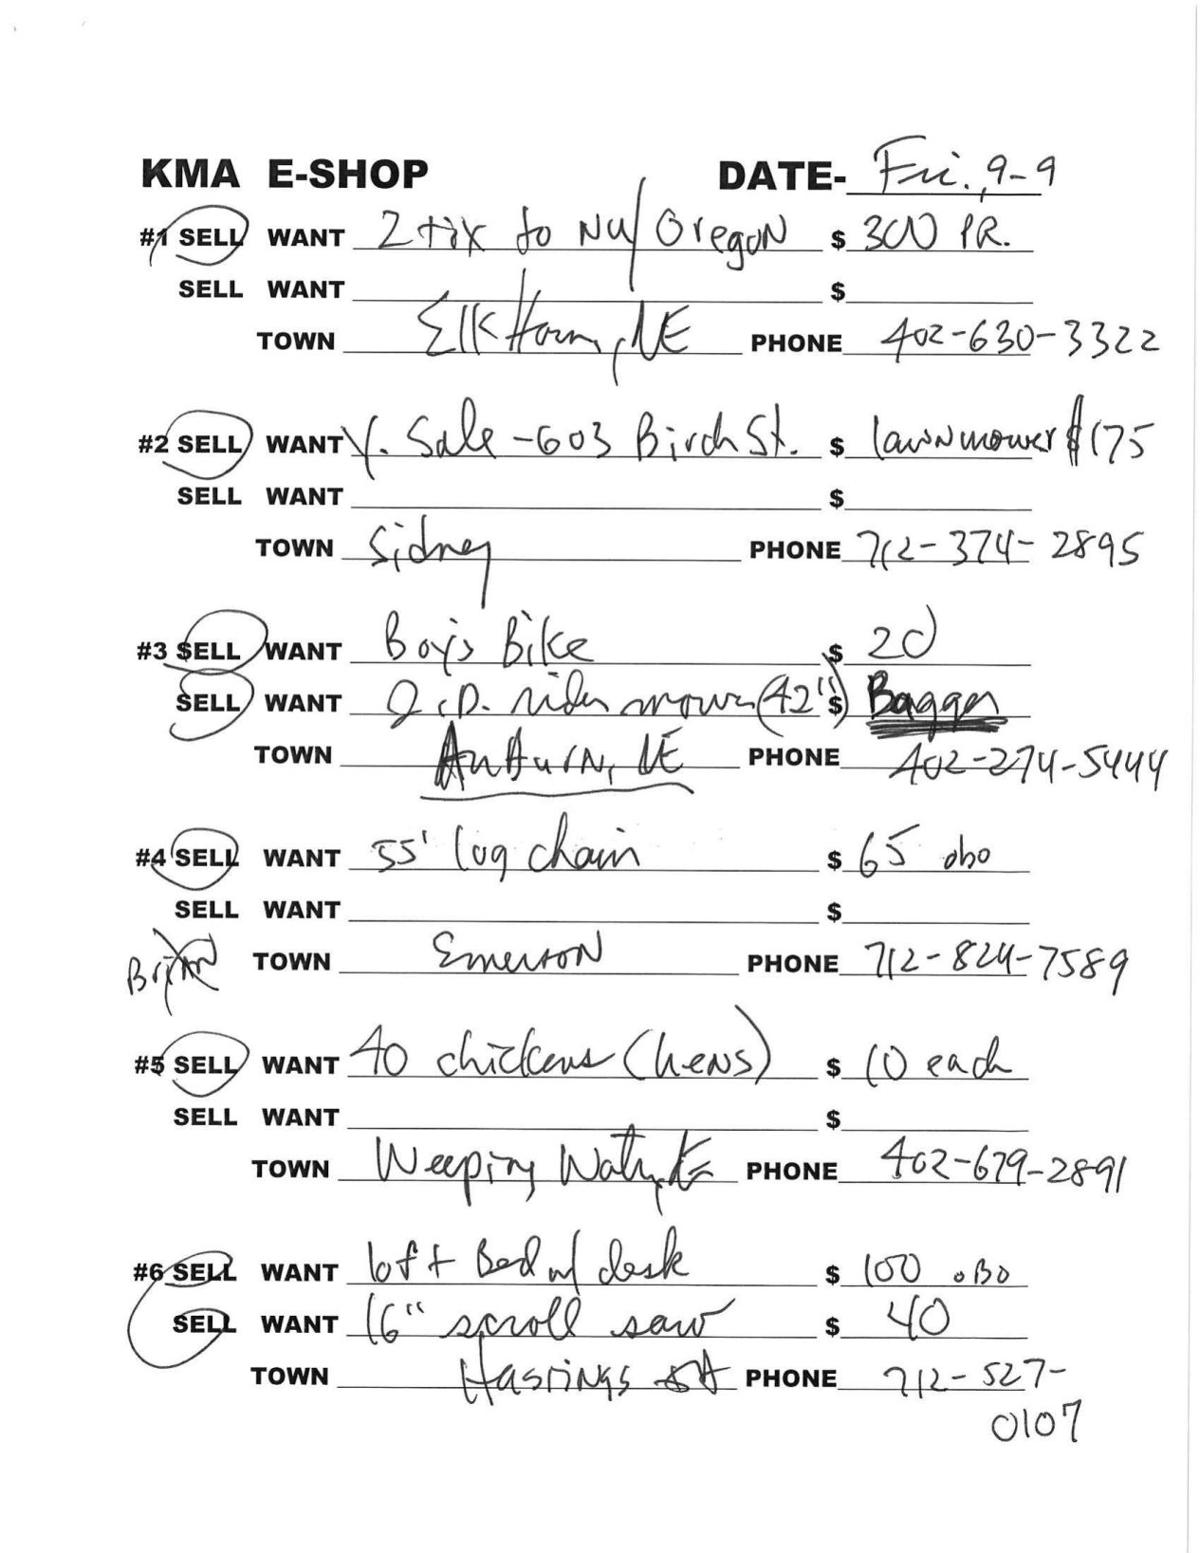 KMA E-SHOP DATE- Fri., 9-9
#1 SELL WANT 2 tix to NU/Oregon $ 300 PR.
SELL WANT $
TOWN ElkHorn, NE PHONE 402-630-3322
#2 SELL WANT Y. Sale - 603 Birch St. $ lawnmower $175
SELL WANT $
TOWN Sidney PHONE 712-374-2895
#3 SELL WANT Boys Bike $ 20
SELL WANT J.D. rider mower (42") $ Bagger
TOWN Auburn, NE PHONE 402-274-5444
#4 SELL WANT 55' log chain $ 65 obo
SELL WANT $
TOWN Emerson PHONE 712-824-7589
#5 SELL WANT 40 chickens (hens) $ 10 each
SELL WANT $
TOWN Weeping Water, NE PHONE 402-679-2891
#6 SELL WANT loft Bed w/ desk $ 100 .OBO
SELL WANT 16" scroll saw $ 40
TOWN Hastings PHONE 712-527-
0107